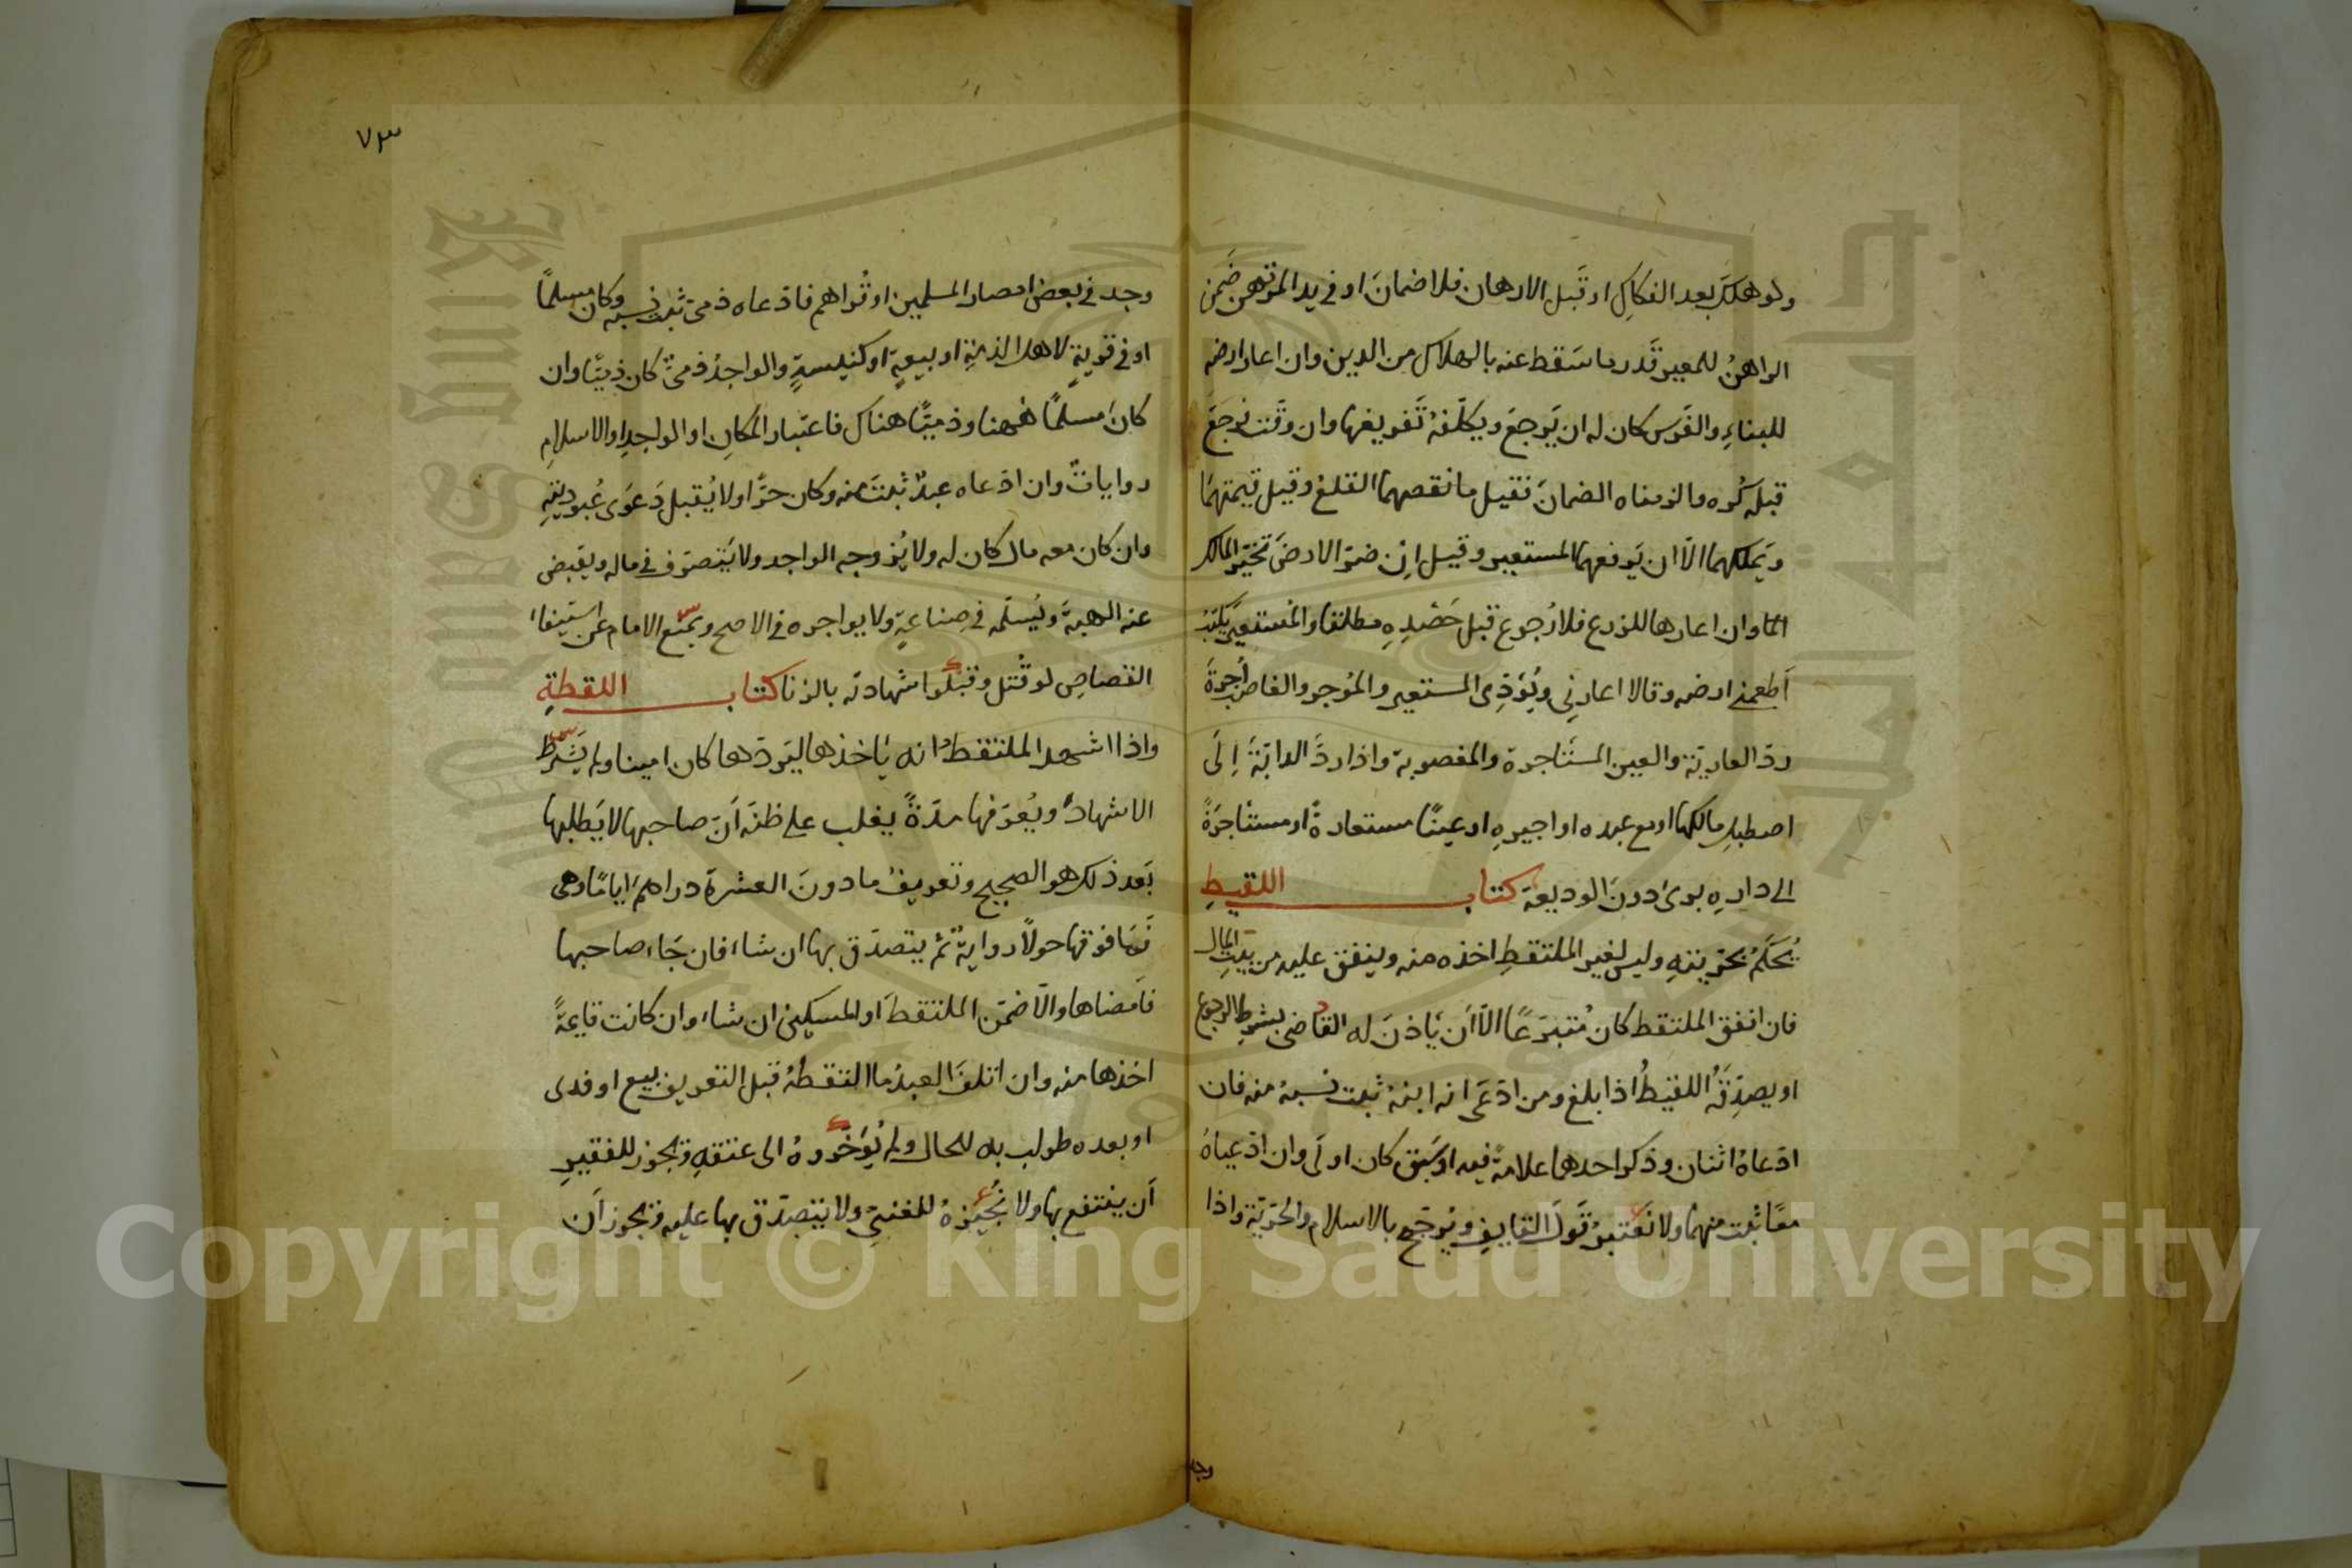 ولو هلك بعد الفكاك او قَبل الارهان فلا ضمانَ او في يد المرتهن ضَمن
الراهنُ للمعير قَدر ما سَقط عنه بالهلاك من الدين وان اعار ارضه
للبناءِ والغَرس كان له ان يَرجعَ ويكلّفهُ تَفريغها وان وقّت فرجعَ
قبله كُره والزمناه الضمانَ فقيل ما نقصهما القلع وقيل قيمتهمَا
ويَملكهما الّا ان يَرفعهما المستعير وقيل اِنْ ضرّ الارضَ تخيّر المالك
امّا وان اعارها للزرع فلا رُجوع قبل حَصْدِهِ مطلقا والمُستعيرُ يَكتبُ
اَطعمني ارضه وقالا اعارنِي ويُؤدِّى المستعير والمُوجر والغاصبُ اُجرةَ
ردّ العاريّة والعين المستَاجرة والمغصوبة واذا ردَّ الدابّةَ اِلَى
اصطبلِ مالكها او مع عبده او اجيرهِ او عينًا مستعارةً او مستَاجرَةً
الى دارِهِ برئَ دونَ الوديعة كتاب اللقيطِ
يُحكَمُ بحُرّيتهِ وليس لغير الملتقطِ اخذه منه وينفق عليه من بيتِ المال
فان انفق الملتقط كان مُتبرّعًا الّا اَن يَاذنَ له القاضى بشرط الرجوع
او يصدِّقَهُ اللقيطُ اذا بلغ ومن ادّعَى انه ابنهُ ثبت نسبهُ منه فان
ادّعاهُ اثنان وذكر احدهما علامةً فيه او سَبق كان اولَى وان ادّعياهُ
معًا ثبت منهما ولا نَعْتبرُ قَولَ القايفِ ويُرجّح بالاسلام والحرّيّة واذا
وجد
٧٣
وجد فى بعض امصار المسلمين او قُراهم فادّعاه ذمىّ ثبت نسبه وكان مسلمًا
او فى قريةٍ لاهل الذمّةِ او بيعةٍ او كنيسةٍ والواجدُ ذمىٌّ كان ذِمّيًّا وان
كانَ مسلمًا فههنا وذميًّا هناك فاعتبار المكانِ او الواجدِ او الاسلامِ
رواياتٌ وان ادّعاه عبدٌ ثبتَ منه وكان حرًّا ولا يُقبل دَعوَى عُبوديّتهِ
وان كان معه مال كان له ولا يُزوجه الواجد ولا يَتصرّف فى ماله ويقبض
عنه الهبةَ ويُسلّمه فى صِناعةٍ ولا يواجره فى الاصح ويمنع الامام عن استيفاء
القصاصِ لو قُتل وقبلُوا شهادته بالزنا كتاب اللقطةِ
واذا اشهد الملتقطُ انه يَاخذها ليَردّها كان امينا ولم يَشرط
الاشهادَ ويُعرّفها مدّةً يغلب على ظنّه اَنّ صاحبها لا يَطلبها
بَعد ذلك هو الصحيح وتعريفُ ما دونَ العشرة دراهمَ ايامًا وهى
فَمَا فوقها حولاً روايةٌ ثم يتصدّق بها ان شاء فان جَاء صاحبها
فاَمضاها والّا ضمّن الملتقطَ او المسكينَ ان شاء وان كانت قايمةً
اخذها منه وان اتلفَ العبدُ ما التقطهُ قبل التعريف بيع او فدى
او بعده طولب به للحال ولم يُؤخّروهُ الى عتقهِ ويجوز للفقيرِ
اَن ينتفع بها ولا نُجيزهُ للغنىِّ ولا يتصدّق بها عليه ويجوز اَن
Copyright © King Saud University